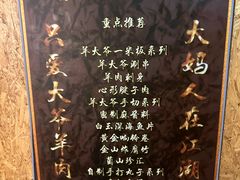 大妈久在江湖
重点推荐
羊大爷一米板系列
羊大爷涮串
羊肉刺身
心形腱子肉
羊大爷手切系列
蜜制麻酱料
白玉深海鱼片
黄金响铃卷
金山炸腐竹
菌山珍汇
自制手打丸子系列
只爱大爷羊肉